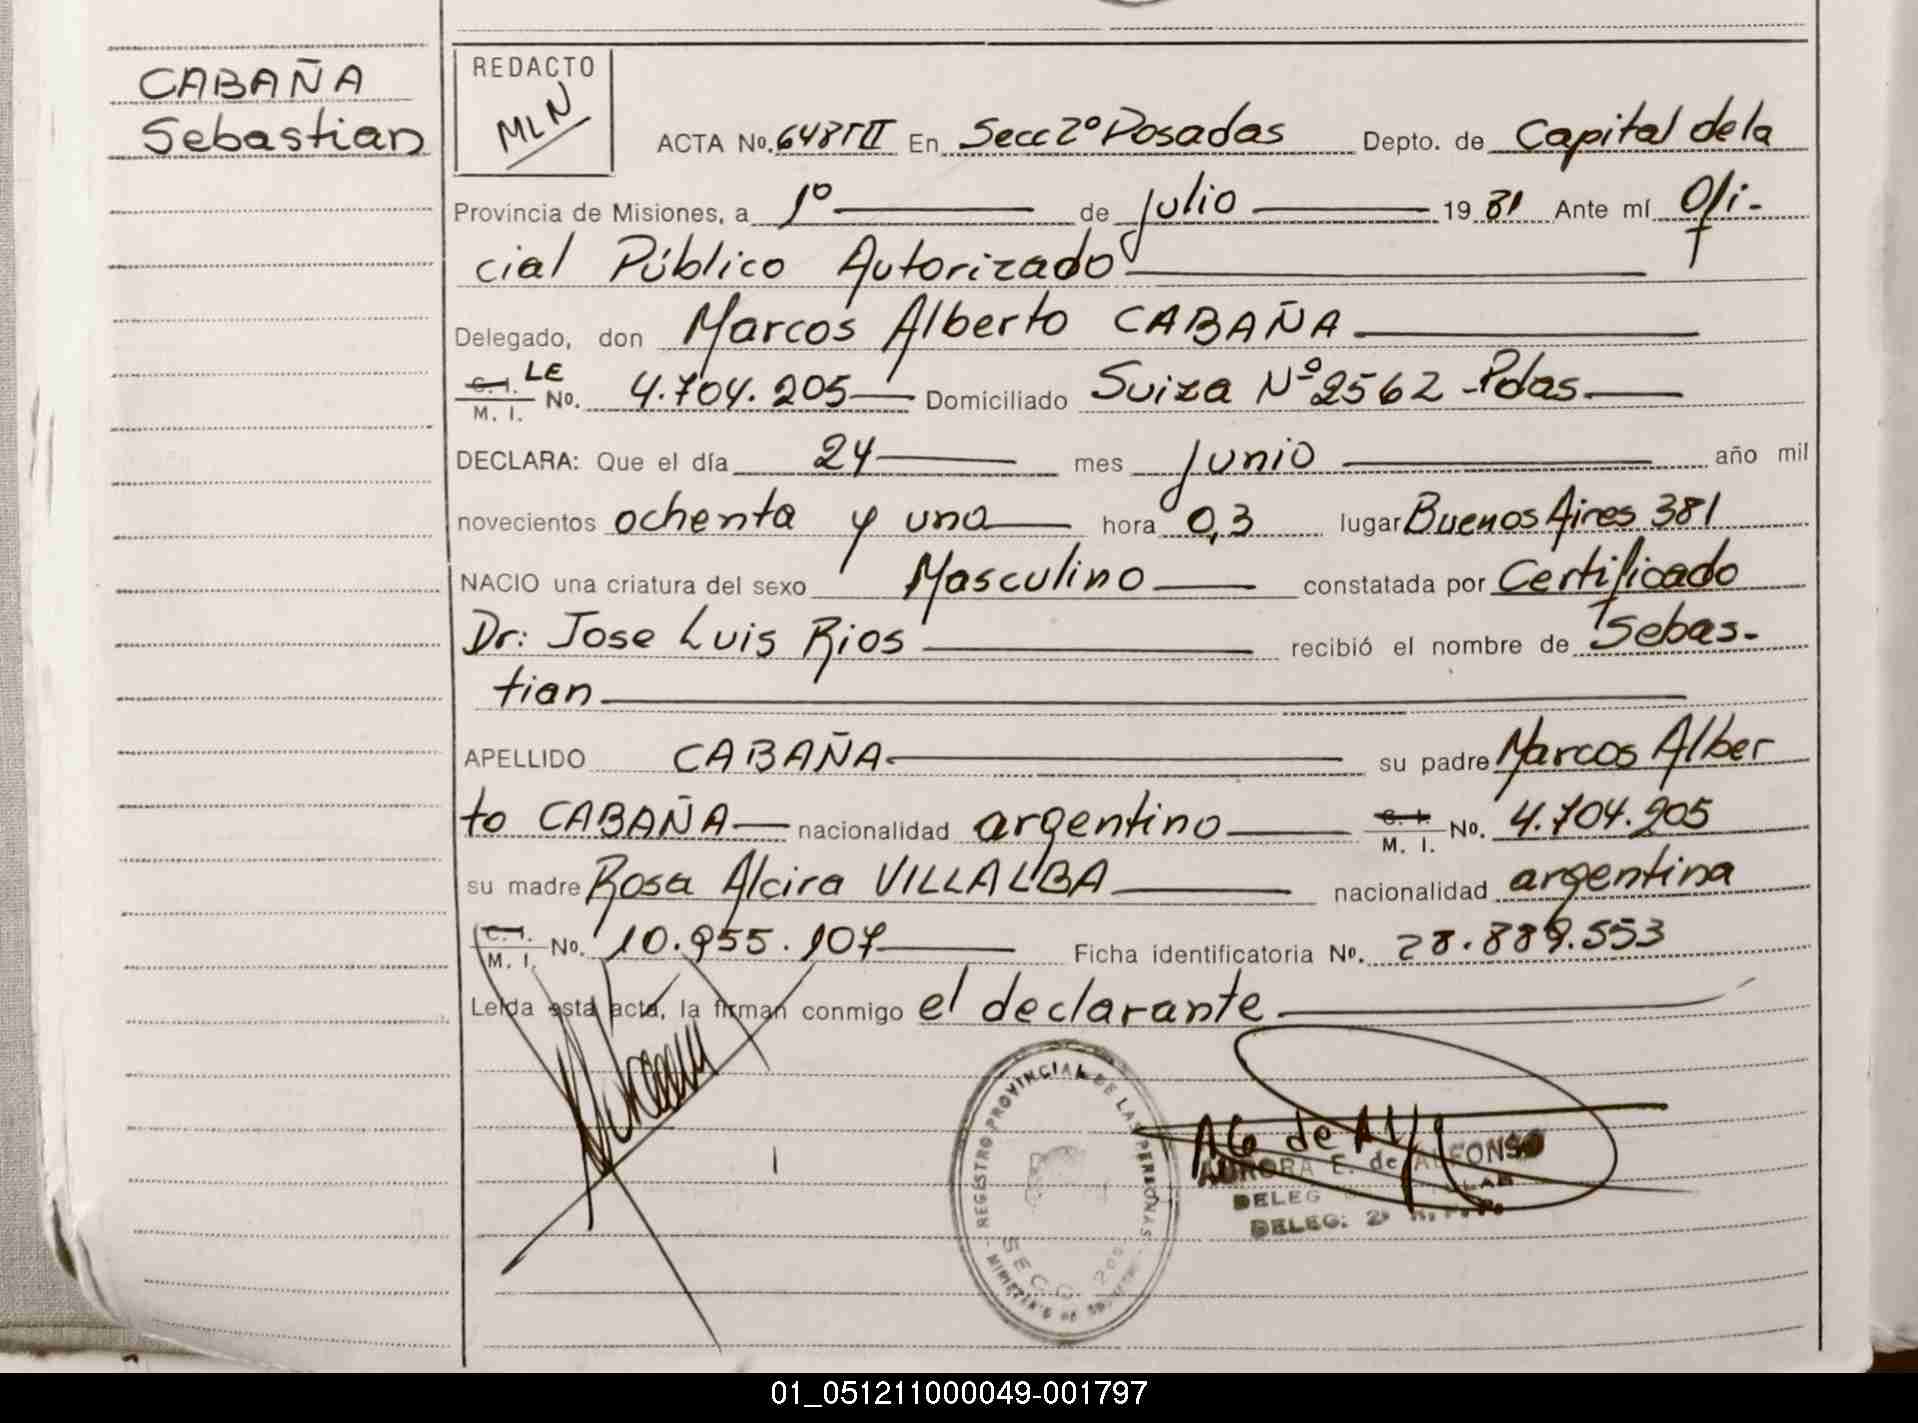 CABAÑA
Sebastian
REDACTO
MLN
ACTA No. 648 T II En Secc 2º Posadas Depto. de Capital de la
Provincia de Misiones, a 1º de Julio 19 81 Ante mí Ofi-
cial Público Autorizado
Delegado, don Marcos Alberto CABAÑA
C. I. LE
M. I. No. 4.704.205 Domiciliado Suiza Nº 2562 - Pdas.
DECLARA: Que el día 24 mes Junio año mil
novecientos ochenta y uno hora 0,3 lugar Buenos Aires 381
NACIO una criatura del sexo Masculino constatada por Certificado
Dr: Jose Luis Rios recibió el nombre de Sebas-
tian
APELLIDO CABAÑA su padre Marcos Alber
to CABAÑA nacionalidad argentino C. I. M. I. No. 4.704.205
su madre Rosa Alcira VILLALBA nacionalidad argentina
C. I. M. I. No. 10.955.107 Ficha identificatoria No. 28.889.553
Leída esta acta, la firman conmigo el declarante
REGISTRO PROVINCIAL DE LAS PERSONAS
SECC. 2
AURORA E. de ALFONSO
DELEG
DELEG: 2
01_051211000049-001797